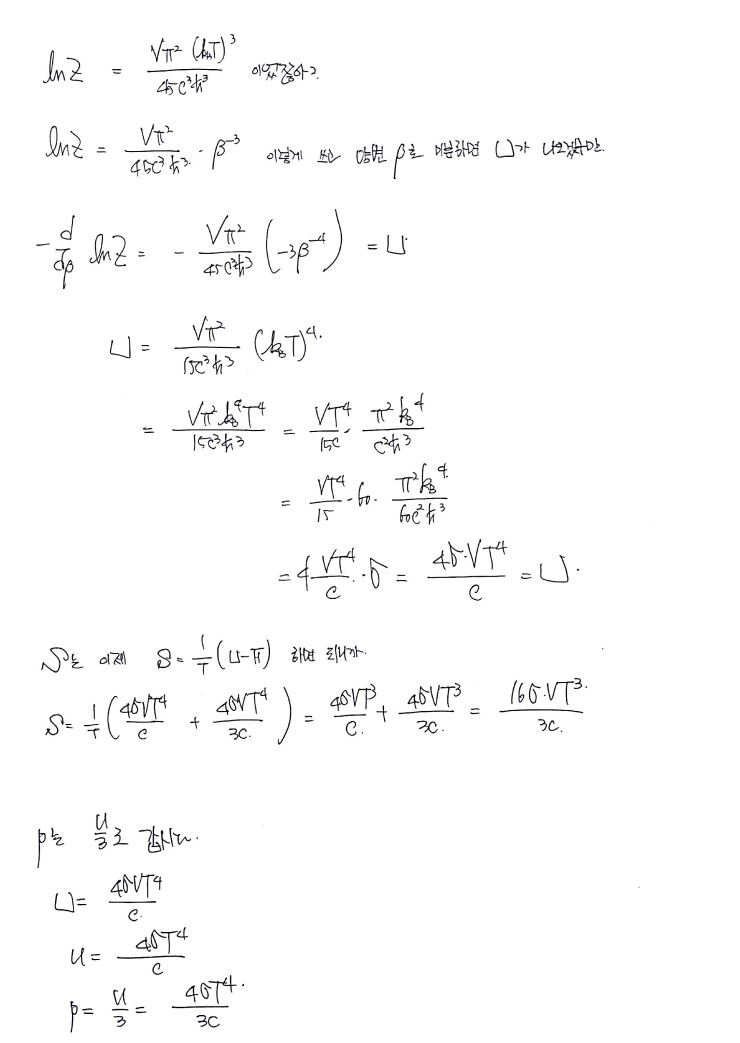 lnZ = Vπ²(k_BT)³ / 45c³ħ³ 이었잖아?
lnZ = Vπ² / 45c³ħ³ · β⁻³ 이렇게 쓰고 양변 β로 미분하면 U가 나오겠구만.
-d/dβ lnZ = - Vπ² / 45c³ħ³ (-3β⁻⁴) = U.
U = Vπ² / 15c³ħ³ (k_BT)⁴.
= Vπ²k_B⁴T⁴ / 15c³ħ³ = VT⁴ / 15c · π²k_B⁴ / c²ħ³
= VT⁴ / 15 · 60 · π²k_B⁴ / 60c²ħ³
= 4 VT⁴ / c · σ = 4σ·VT⁴ / c = U.
S는 이제 S = 1/T (U-F) 하면 되니까.
S = 1/T (4σVT⁴ / c + 4σVT⁴ / 3c.) = 4σVT³ / c. + 4σVT³ / 3c. = 16σ·VT³. / 3c.
p는 u/3로 갑시다.
U = 4σVT⁴ / c.
u = 4σT⁴ / c
p = u/3 = 4σT⁴. / 3c